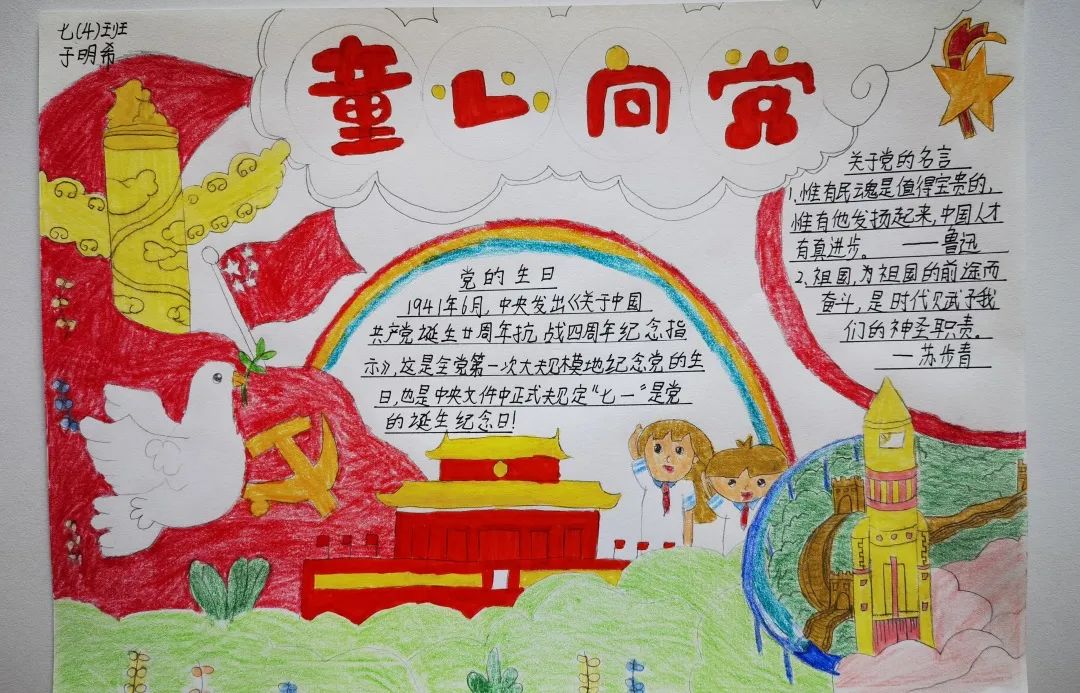 七(4)班
于明希
童心向党
关于党的名言
1.惟有民魂是值得宝贵的，
惟有他发扬起来，中国人才
有真进步。 ——鲁迅
2.祖国，为祖国的前途而
奋斗，是时代赋予我
们的神圣职责。
—苏步青
党的生日
1941年6月，中央发出《关于中国
共产党诞生廿周年抗，战四周年纪念指
示》，这是全党第一次大规模地纪念党的生
日，也是中央文件中正式规定“七一”是党
的诞生纪念日！